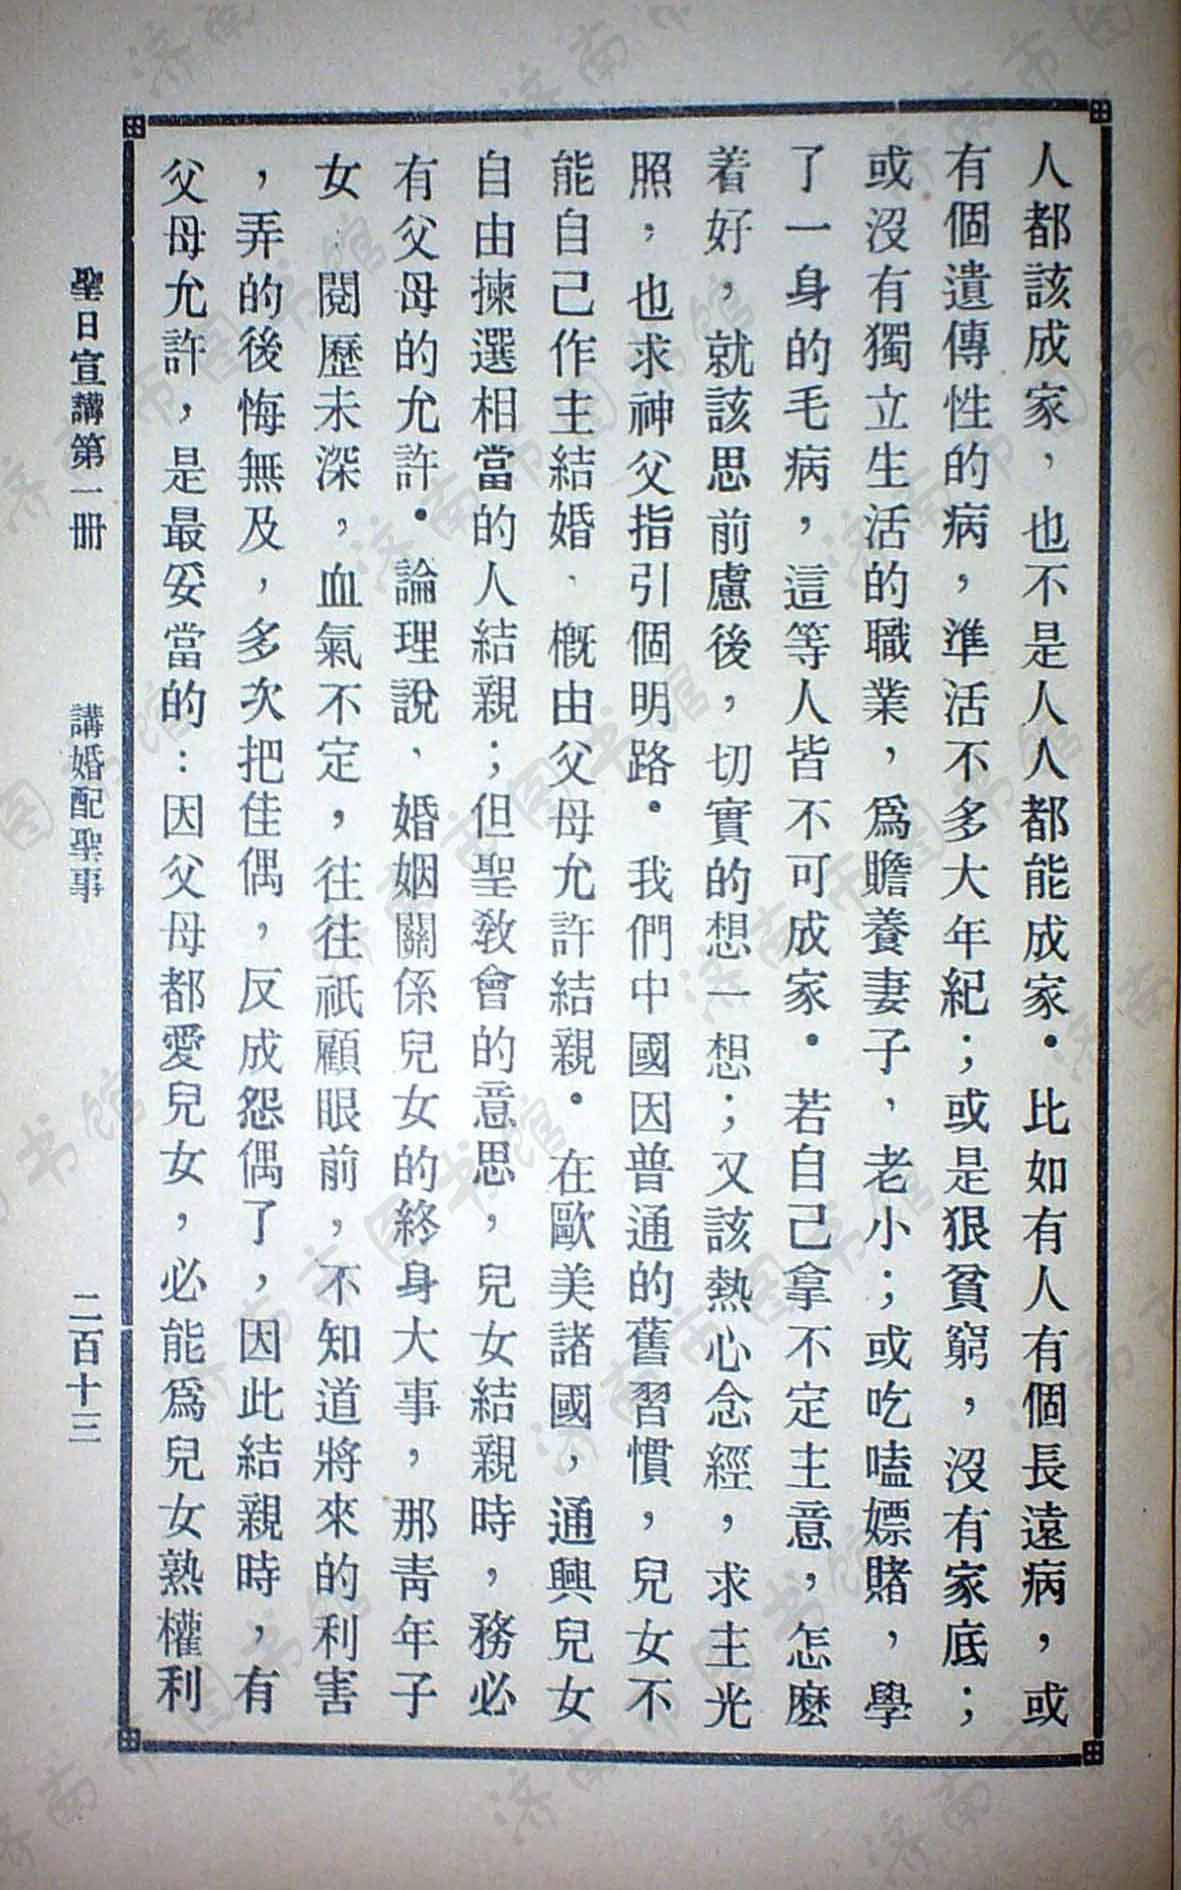 人都該成家，也不是人人都能成家．比如有人有個長遠病，或
有個遺傳性的病，準活不多大年紀；或是狠貧窮，沒有家底；
或沒有獨立生活的職業，爲贍養妻子，老小；或吃嗑嫖賭，學
了一身的毛病，這等人皆不可成家．若自己拿不定主意，怎麽
着好，就該思前慮後，切實的想一想；又該熱心念經，求主光
照，也求神父指引個明路．我們中國因普通的舊習慣，兒女不
能自己作主結婚、概由父母允許結親．在歐美諸國，通興兒女
自由揀選相當的人結親；但聖敎會的意思，兒女結親時，務必
有父母的允許．論理說、婚姻關係兒女的終身大事，那靑年子
女　閱歷未深，血氣不定，往往祇顧眼前，不知道將來的利害
，弄的後悔無及，多次把佳偶，反成怨偶了，因此結親時，有
父母允許，是最妥當的：因父母都愛兒女，必能爲兒女熟權利
聖日宣講第一冊　講婚配聖事　二百十三
济南市图书馆